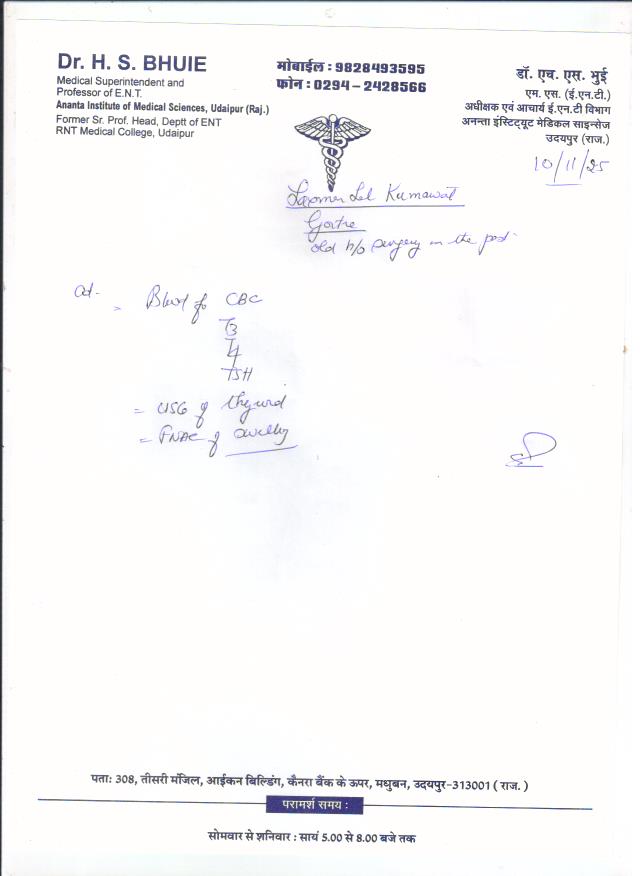 Dr. H. S. BHUIE
Medical Superintendent and
Professor of E.N.T.
Ananta Institute of Medical Sciences, Udaipur (Raj.)
Former Sr. Prof. Head, Deptt of ENT
RNT Medical College, Udaipur
मोबाईल : 9828493595
फोन : 0294 - 2428566
डॉ. एच. एस. भुई
एम. एस. (ई.एन.टी.)
अधीक्षक एवं आचार्य ई.एन.टी विभाग
अनन्ता इंस्टिट्यूट मेडिकल साइन्सेज
उदयपुर (राज.)
10/11/25
Lal Kumawat
Goitre
old h/o surgery in the past
= Blood for CBC
T3
T4
TSH
= USG of thyroid
= FNAC of swelling
पताः 308, तीसरी मंजिल, आईकन बिल्डिंग, कैनरा बैंक के ऊपर, मधुबन, उदयपुर-313001 ( राज. )
परामर्श समय :
सोमवार से शनिवार : सायं 5.00 से 8.00 बजे तक